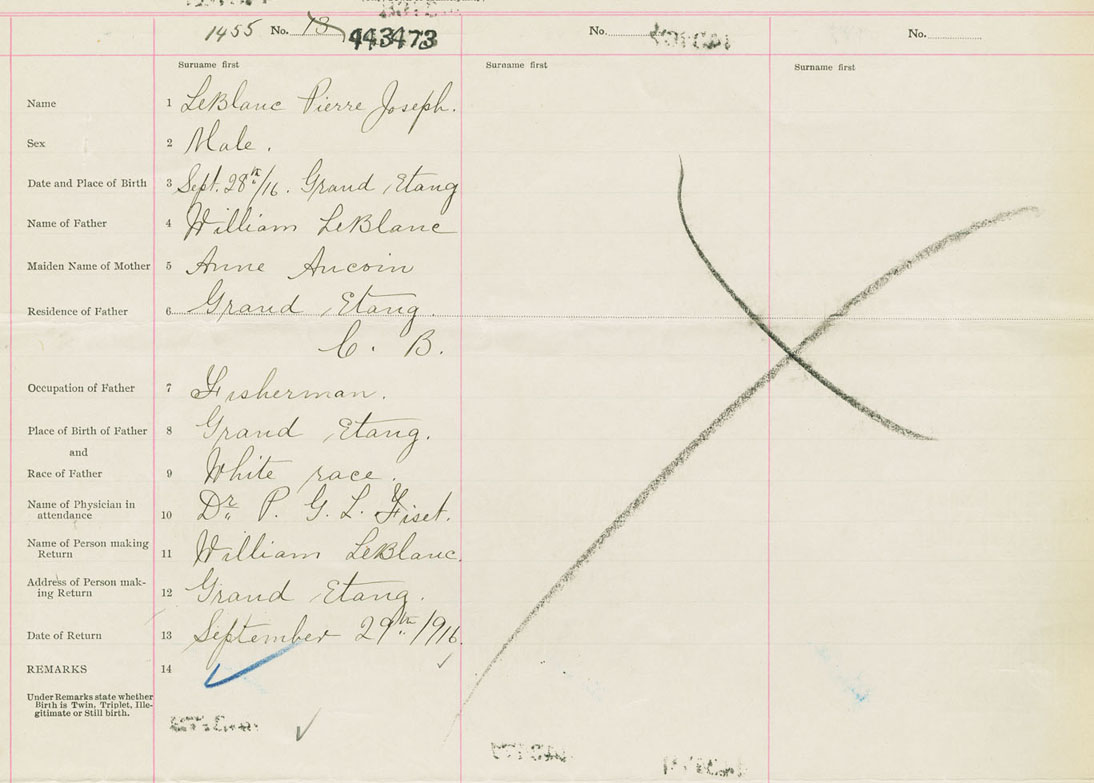 1455 No. 13 443473 No. No.
Surname first Surname first Surname first
Name 1 LeBlanc Pierre Joseph.
Sex 2 Male.
Date and Place of Birth 3 Sept. 28th/16. Grand Etang
Name of Father 4 William LeBlanc
Maiden Name of Mother 5 Anne Aucoin
Residence of Father 6 Grand Etang.
C. B.
Occupation of Father 7 Fisherman.
Place of Birth of Father 8 Grand Etang.
and
Race of Father 9 White race.
Name of Physician in
attendance 10 Dr. P. G. L. Fiset.
Name of Person making
Return 11 William LeBlanc.
Address of Person mak-
ing Return 12 Grand Etang.
Date of Return 13 September 29th /916.
REMARKS 14
Under Remarks state whether
Birth is Twin, Triplet, Ille-
gitimate or Still birth.